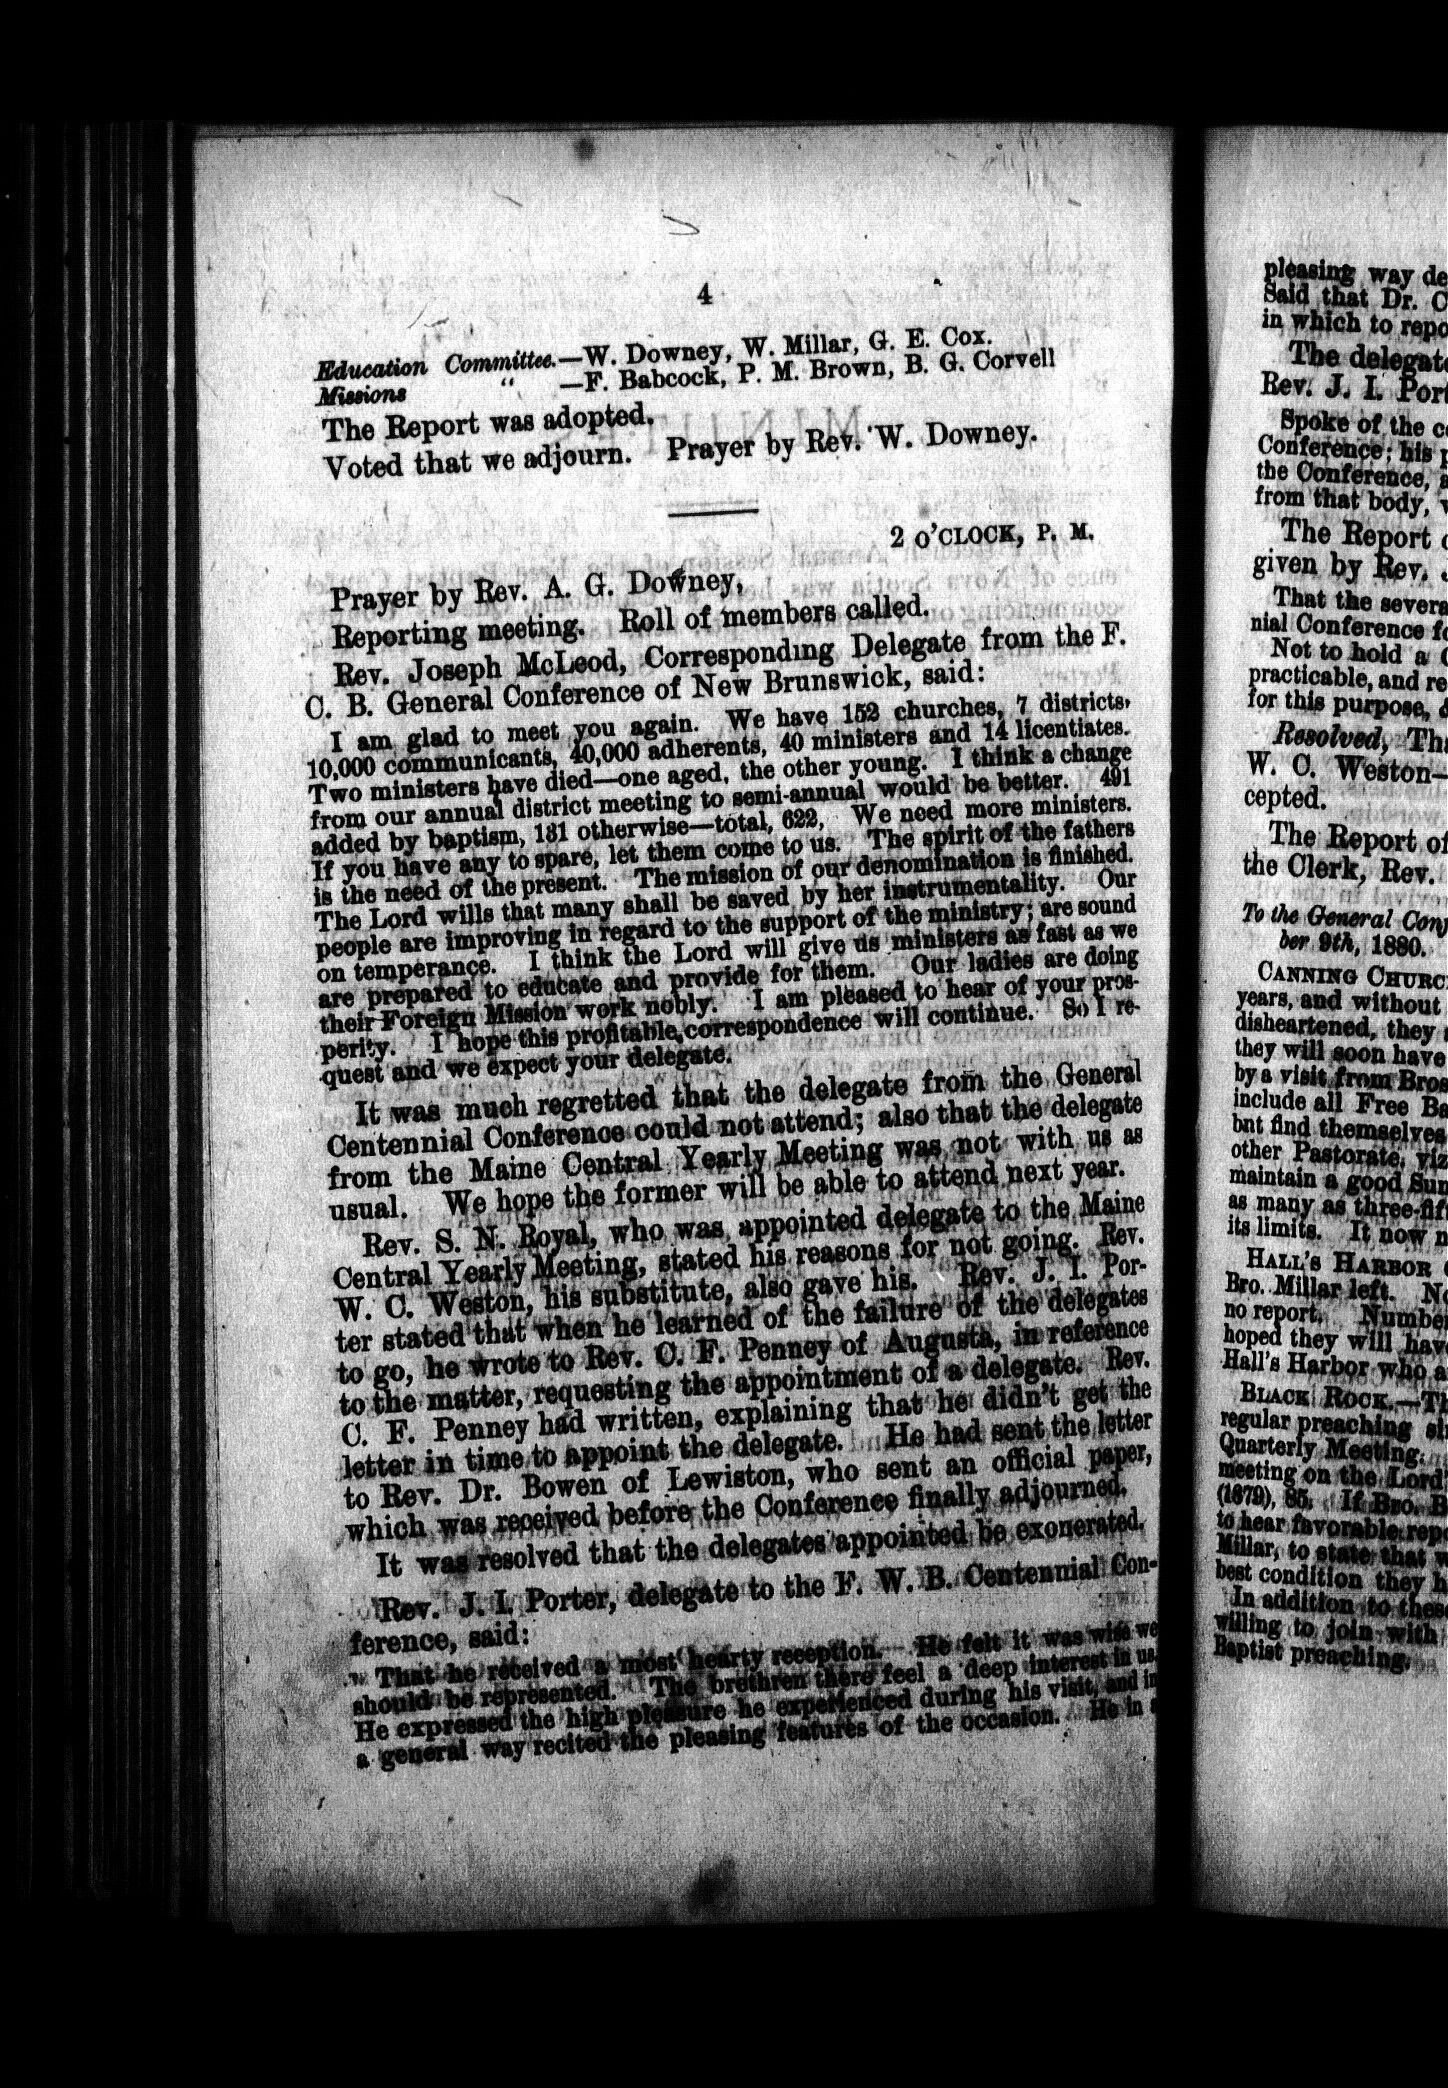 4
Education Committee.—W. Downey, W. Millar, G. E. Cox.
Missions " —F. Babcock, P. M. Brown, B. G. Corvell
The Report was adopted.
Voted that we adjourn. Prayer by Rev. W. Downey.
2 O'CLOCK, P. M.
Prayer by Rev. A. G. Downey,
Reporting meeting. Roll of members called.
Rev. Joseph McLeod, Corresponding Delegate from the F.
C. B. General Conference of New Brunswick, said:
I am glad to meet you again. We have 152 churches, 7 districts,
10,000 communicants, 40,000 adherents, 40 ministers and 14 licentiates.
Two ministers have died—one aged, the other young. I think a change
from our annual district meeting to semi-annual would be better. 491
added by baptism, 131 otherwise—total, 622, We need more ministers.
If you have any to spare, let them come to us. The spirit of the fathers
is the need of the present. The mission of our denomination is finished.
The Lord wills that many shall be saved by her instrumentality. Our
people are improving in regard to the support of the ministry; are sound
on temperance. I think the Lord will give us ministers as fast as we
are prepared to educate and provide for them. Our ladies are doing
their Foreign Mission work nobly. I am pleased to hear of your pros-
perity. I hope this profitable correspondence will continue. So I re-
quest and we expect your delegate.
It was much regretted that the delegate from the General
Centennial Conference could not attend; also that the delegate
from the Maine Central Yearly Meeting was not with us as
usual. We hope the former will be able to attend next year.
Rev. S. N. Royal, who was appointed delegate to the Maine
Central Yearly Meeting, stated his reasons for not going. Rev.
W. C. Weston, his substitute, also gave his. Rev. J. I. Por-
ter stated that when he learned of the failure of the delegates
to go, he wrote to Rev. C. F. Penney of Augusta, in reference
to the matter, requesting the appointment of a delegate. Rev.
C. F. Penney had written, explaining that he didn't get the
letter in time to appoint the delegate. He had sent the letter
to Rev. Dr. Bowen of Lewiston, who sent an official paper,
which was received before the Conference finally adjourned.
It was resolved that the delegates appointed be exonerated.
Rev. J. I. Porter, delegate to the F. W. B. Centennial Con-
ference, said:
That he received a most hearty reception. He felt it was wise we
should be represented. The brethren there feel a deep interest in us.
He expressed the high pleasure he experienced during his visit, and in
a general way recited the pleasing features of the occasion. He in a
pleasing way de
Said that Dr. C
in which to repo
The delegate
Rev. J. I. Port
Spoke of the c
Conference; his
the Conference, a
from that body,
The Report
given by Rev.
That the severa
nial Conference fo
Not to hold a
practicable, and re
for this purpose,
Resolved, Tha
W. C. Weston—
cepted.
The Report of
the Clerk, Rev.
To the General Conf
ber 9th, 1880.
CANNING CHURC
years, and without
disheartened, they
they will soon have
by a visit from Bros
include all Free Ba
but find themselves
other Pastorate, viz
maintain a good Sun
as many as three-fif
its limits. It now n
HALL'S HARBOR
Bro. Millar left. No
no report. Number
hoped they will hav
Hall's Harbor who a
BLACK ROCK.—Th
regular preaching si
Quarterly Meeting.
meeting on the Lord
(1879), 85. If Bro. B
to hear favorable repo
Millar, to state that w
best condition they h
In addition to these
willing to join with
Baptist preaching.